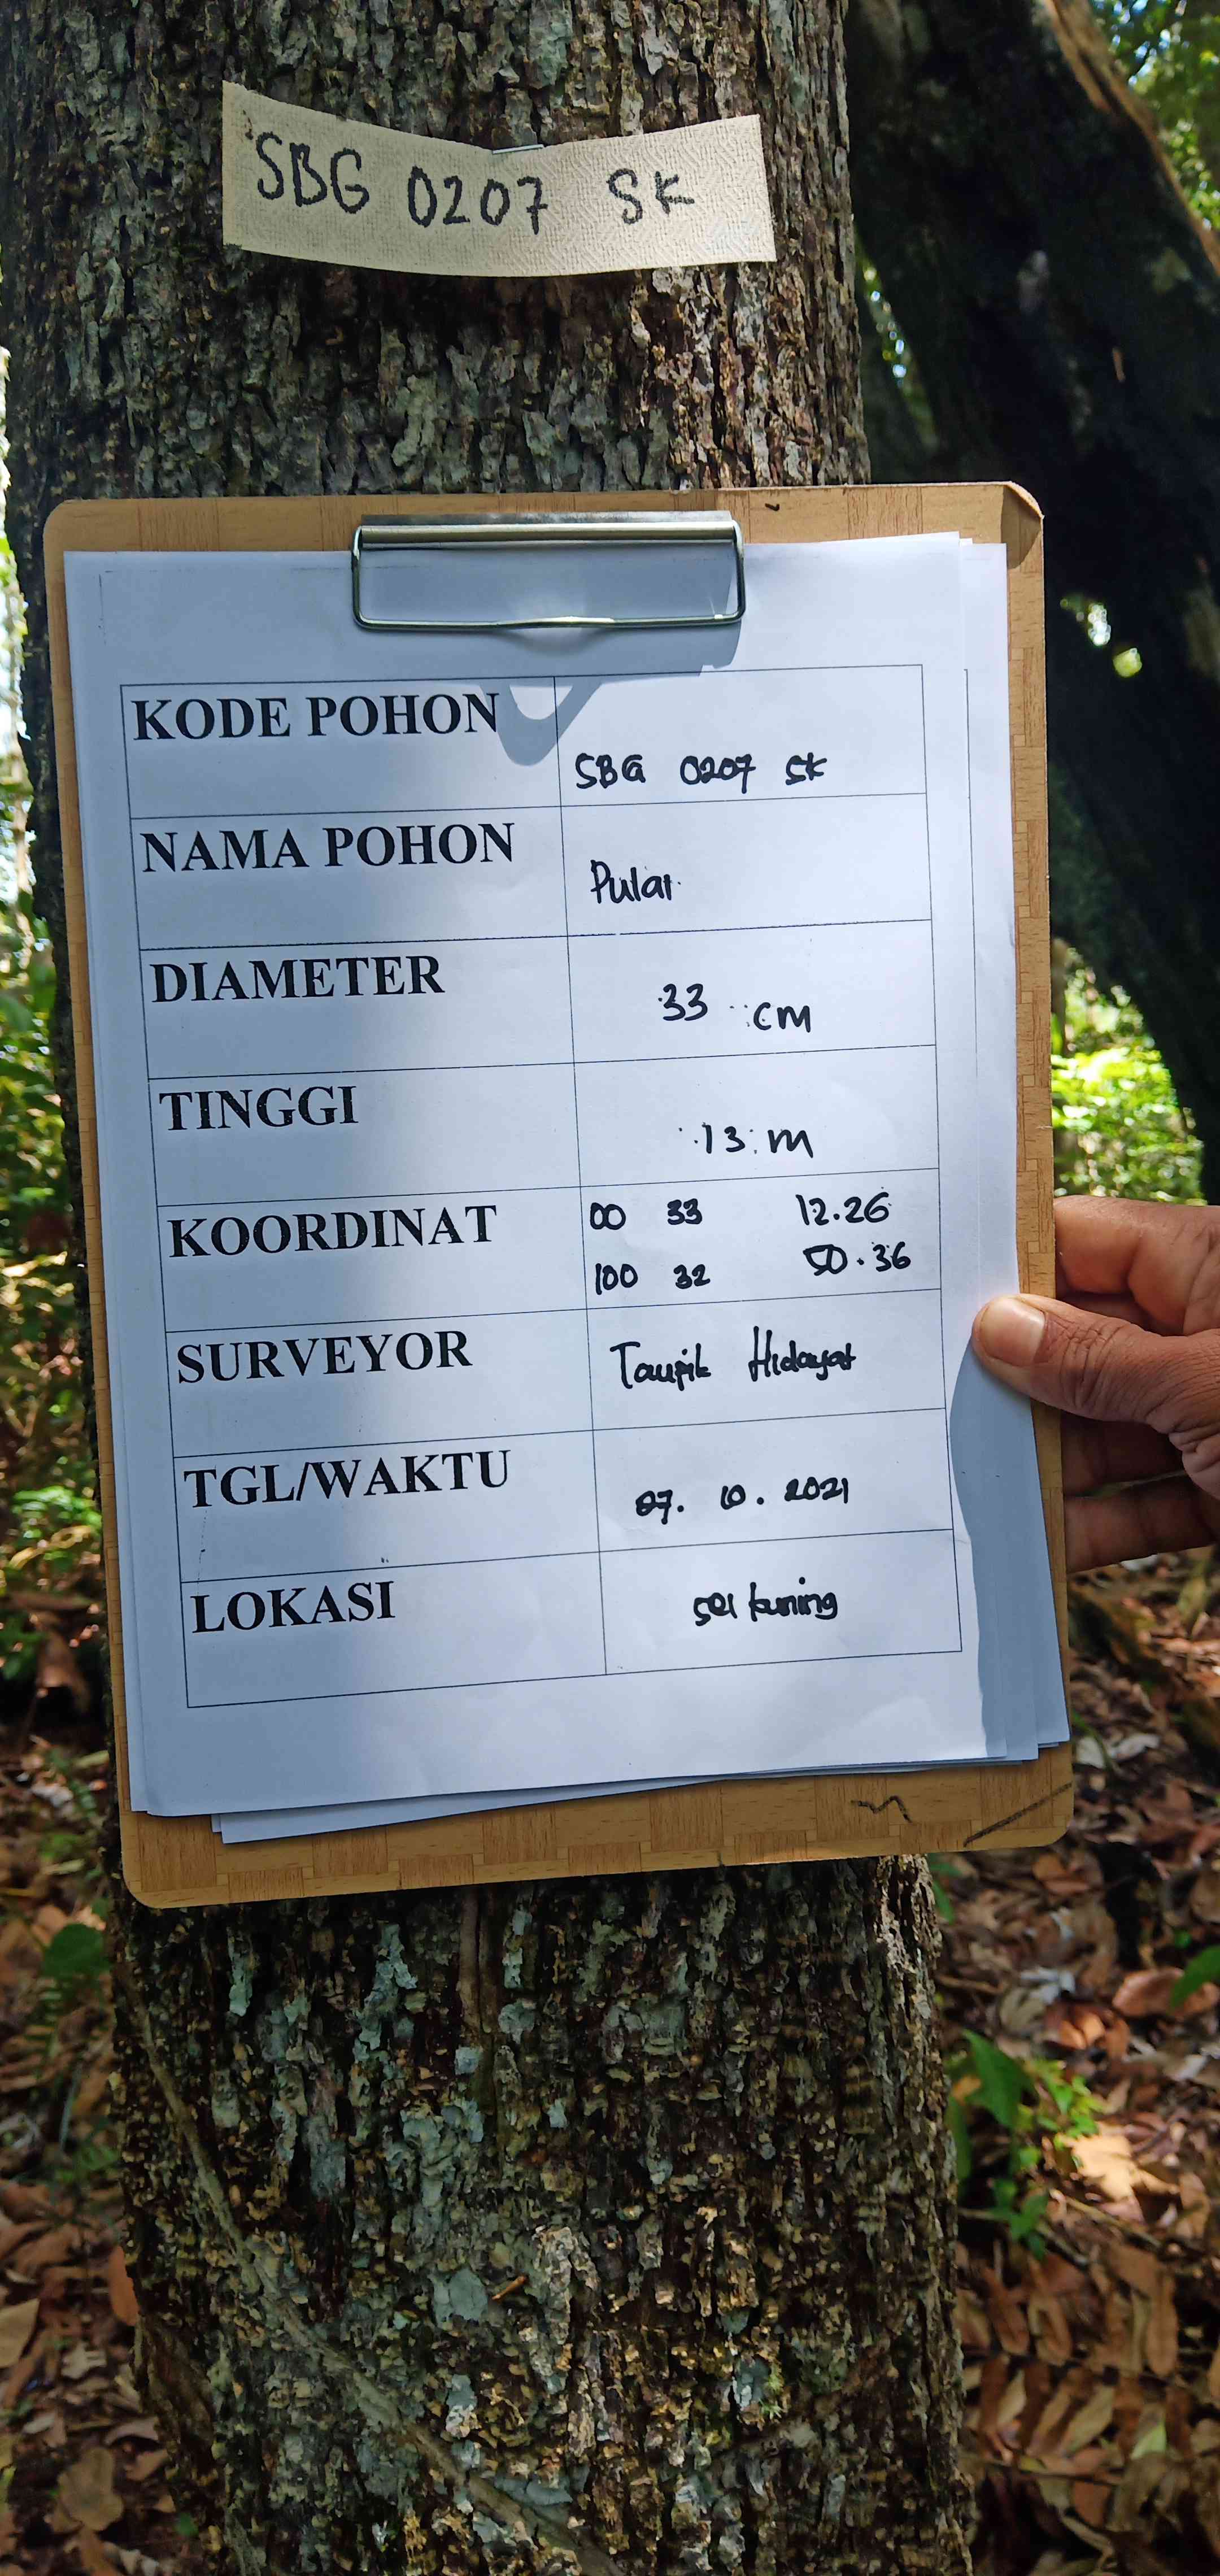 SBG 0207 SK
KODE POHON
SBG 0207 SK
NAMA POHON
Pulai
DIAMETER
33 cm
TINGGI
13 m
KOORDINAT
00 33 12.26
100 32 50.36
SURVEYOR
Taupik Hidayat
TGL/WAKTU
07. 10. 2021
LOKASI
sei kuning